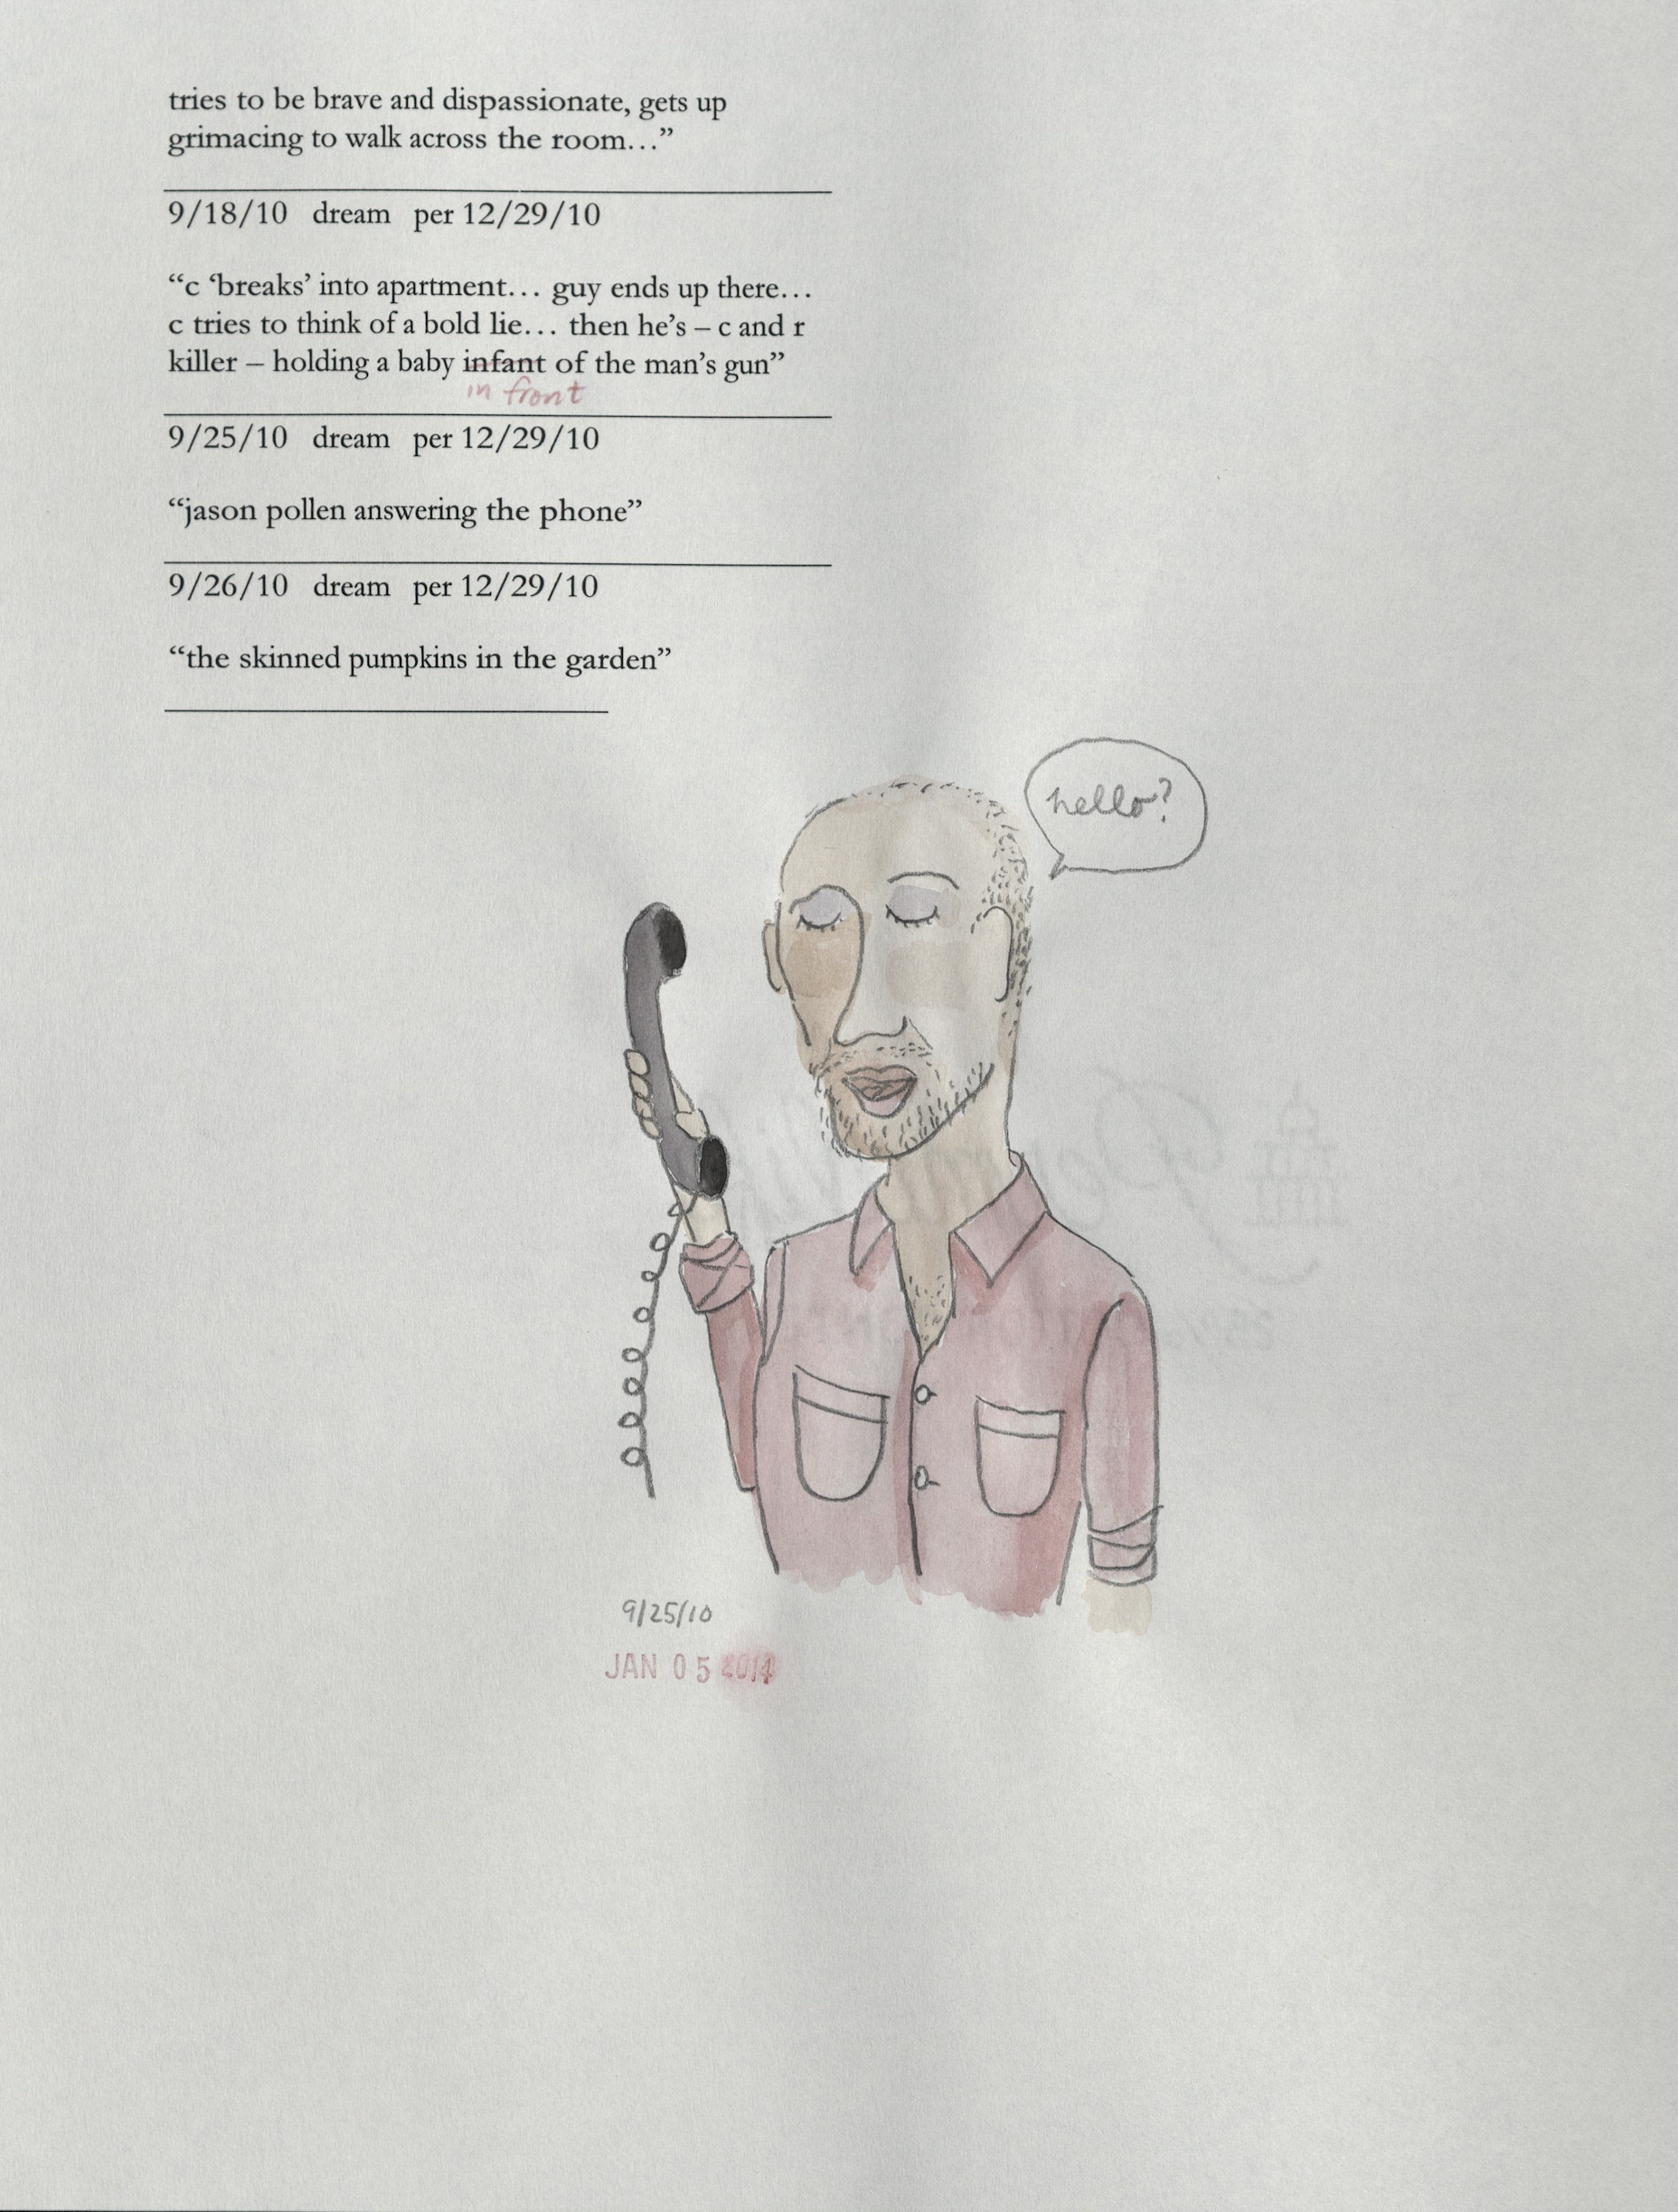 tries to be brave and dispassionate, gets up
grimacing to walk across the room…”
9/18/10 dream per 12/29/10
“c ‘breaks’ into apartment… guy ends up there…
c tries to think of a bold lie… then he’s – c and r
killer – holding a baby infant of the man’s gun”
in front
9/25/10 dream per 12/29/10
“jason pollen answering the phone”
9/26/10 dream per 12/29/10
“the skinned pumpkins in the garden”
hello?
9/25/10
JAN 05 2014